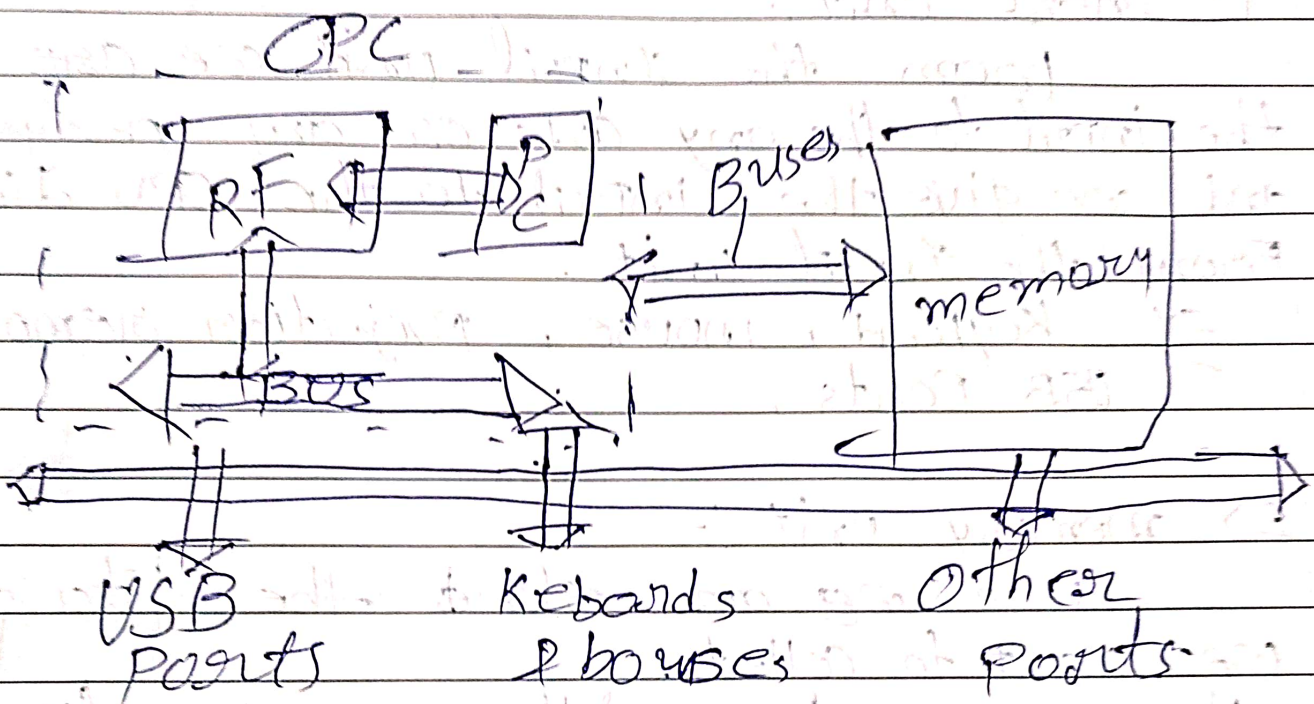 CPC
RF
PC
Buses
memory
BUS
USB
Ports
Keboards
& bouses
Other
Ports